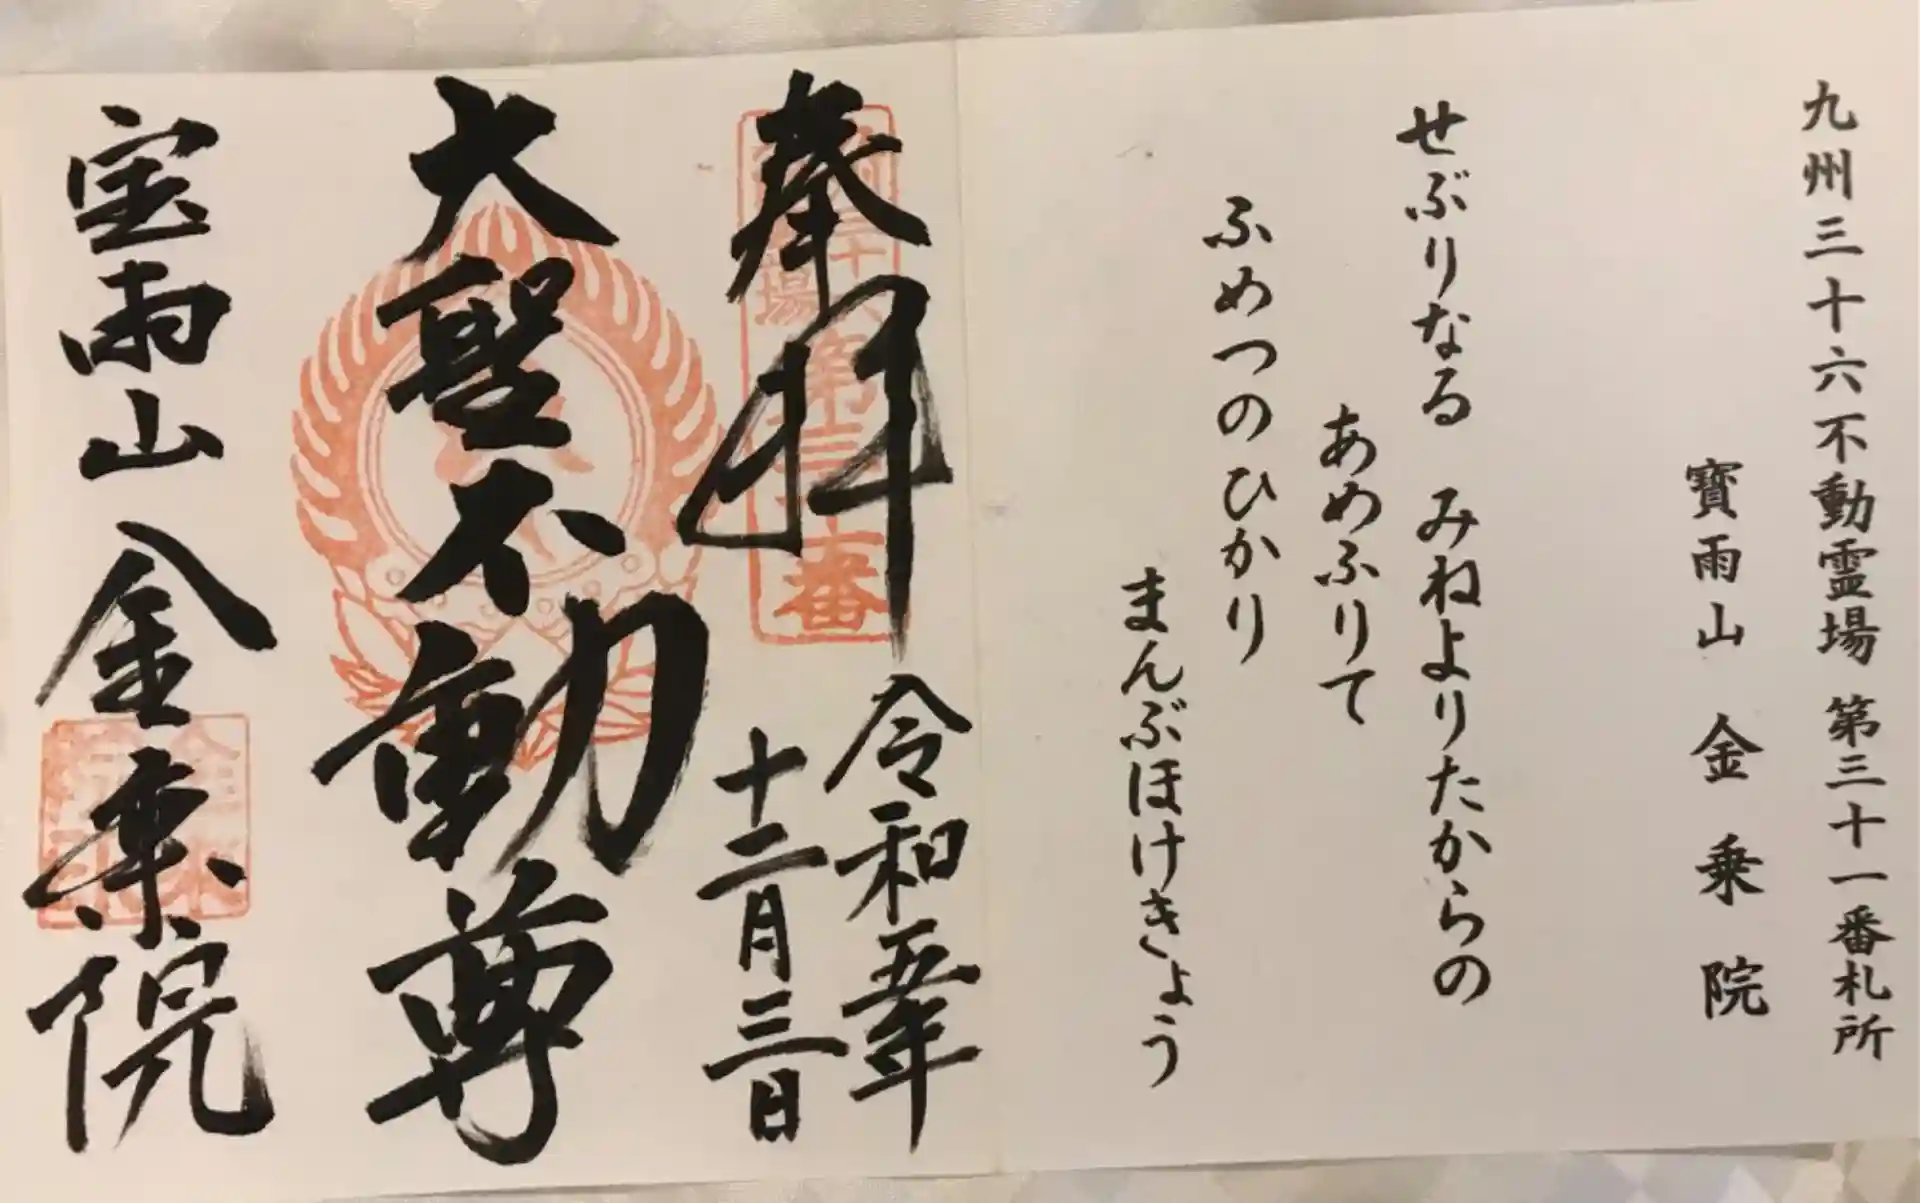 九州三十六不動霊場 第三十一番札所
寶雨山 金乗院
せぶりなる みねよりりたからの
あめふりて
ふめつのひかり
まんぶほけきょう
奉拝
令和五年
十二月三日
大聖不動尊
宝雨山 金乗院